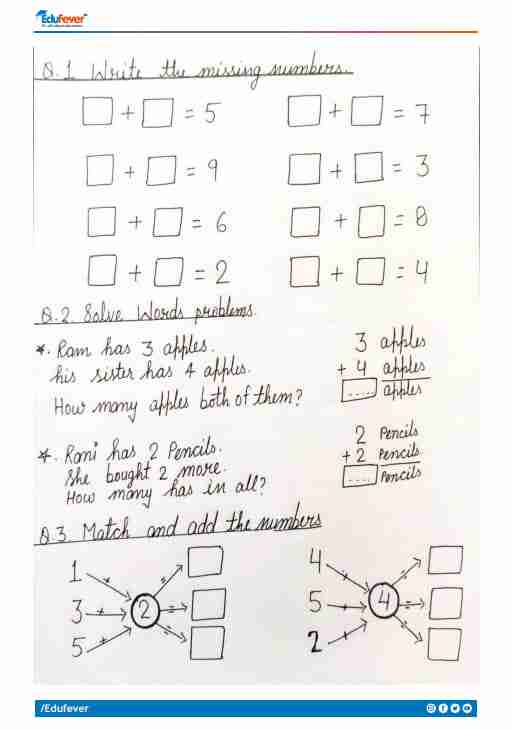 Edufever
Q.1 Write the missing numbers.
□ + □ = 5 □ + □ = 7
□ + □ = 9 □ + □ = 3
□ + □ = 6 □ + □ = 8
□ + □ = 2 □ + □ = 4
Q.2. Solve Words problems.
*. Ram has 3 apples. 3 apples
his sister has 4 apples. + 4 apples
How many apples both of them? ..... apples
*. Rani has 2 Pencils. 2 Pencils
She bought 2 more. + 2 Pencils
How many has in all? .... Pencils
Q.3 Match and add the numbers
1 + + = □ 4 + + = □
3 + 2 = □ 5 + 4 = □
5 + = □ 2 + = □
/Edufever